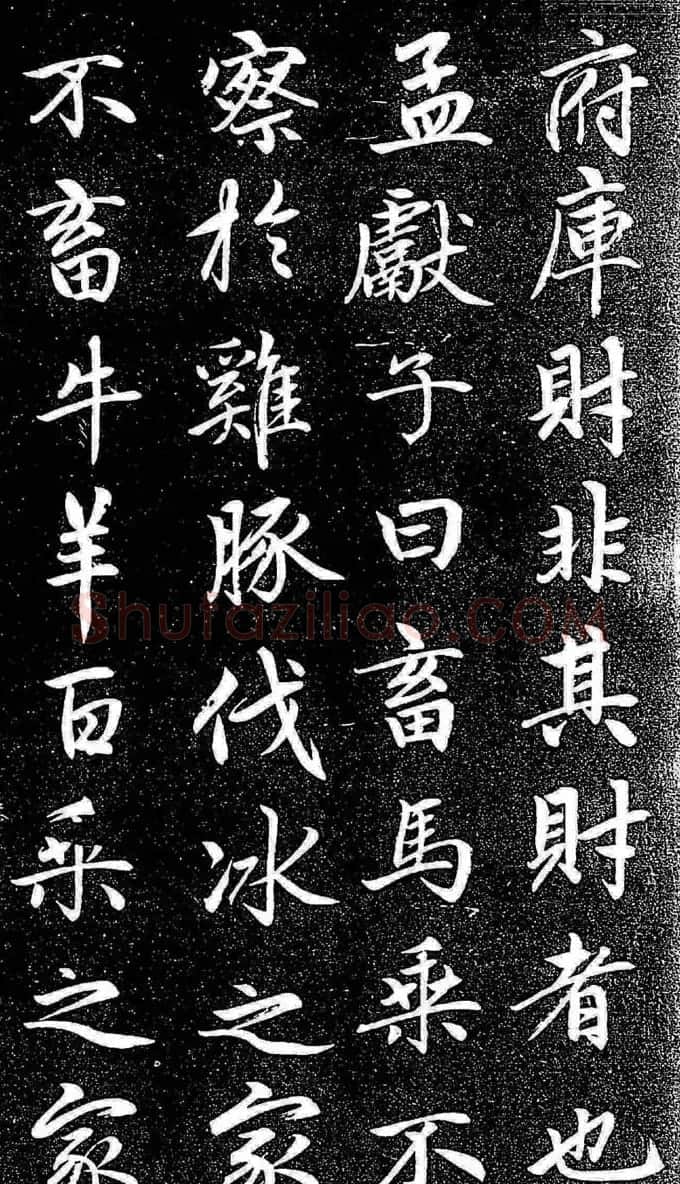 府庫財非其財者也
孟獻子曰畜馬乘不
察於雞豚伐冰之家
不畜牛羊百乘之家
Shufaziliao.COM